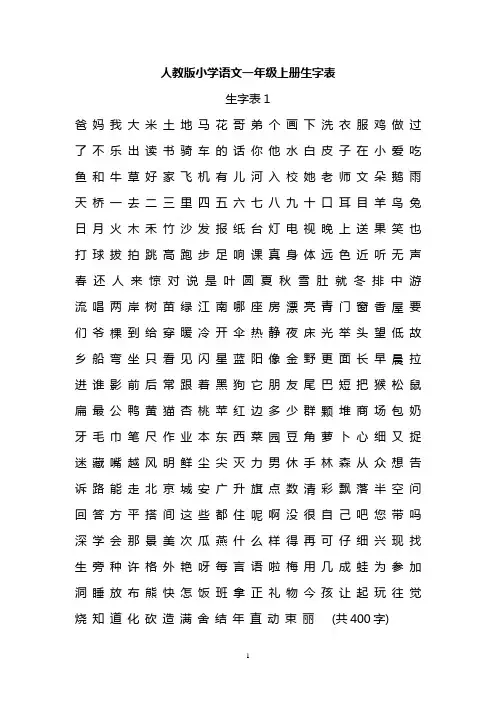 人教版小学语文一年级上册生字表
生字表1
爸妈我大米土地马花哥弟个画下洗衣服鸡做过
了不乐出读书骑车的话你他水白皮子在小爱吃
鱼和牛草好家飞机有儿河入校她老师文朵鹅雨
天桥一去二三里四五六七八九十口耳目羊鸟兔
日月火木禾竹沙发报纸台灯电视晚上送果笑也
打球拔拍跳高跑步足响课真身体远色近听无声
春还人来惊对说是叶圆夏秋雪肚就冬排中游
流唱两岸树苗绿江南哪座房漂亮青门窗香屋要
们爷棵到给穿暖冷开伞热静夜床光举头望低故
乡船弯坐只看见闪星蓝阳像金野更面长早晨拉
进谁影前后常跟着黑狗它朋友尾巴短把猴松鼠
扁最公鸭黄猫杏桃苹红边多少群颗堆商场包奶
牙毛巾笔尺作业本东西菜园豆角萝卜心细又捉
迷藏嘴越风明鲜尘尖灭力男休手林森从众想告
诉路能走北京城安广升旗点数清彩飘落半空问
回答方平搭间这些都住呢啊没很自己吧您带吗
深学会那景美次瓜燕什么样得再可仔细兴现找
生旁种许格外艳呀每言语啦梅用几成蛙为参加
洞睡放布熊快怎饭班拿正礼物今孩让起玩往觉
烧知道化砍造满舍结年直动束丽 (共400字)
1